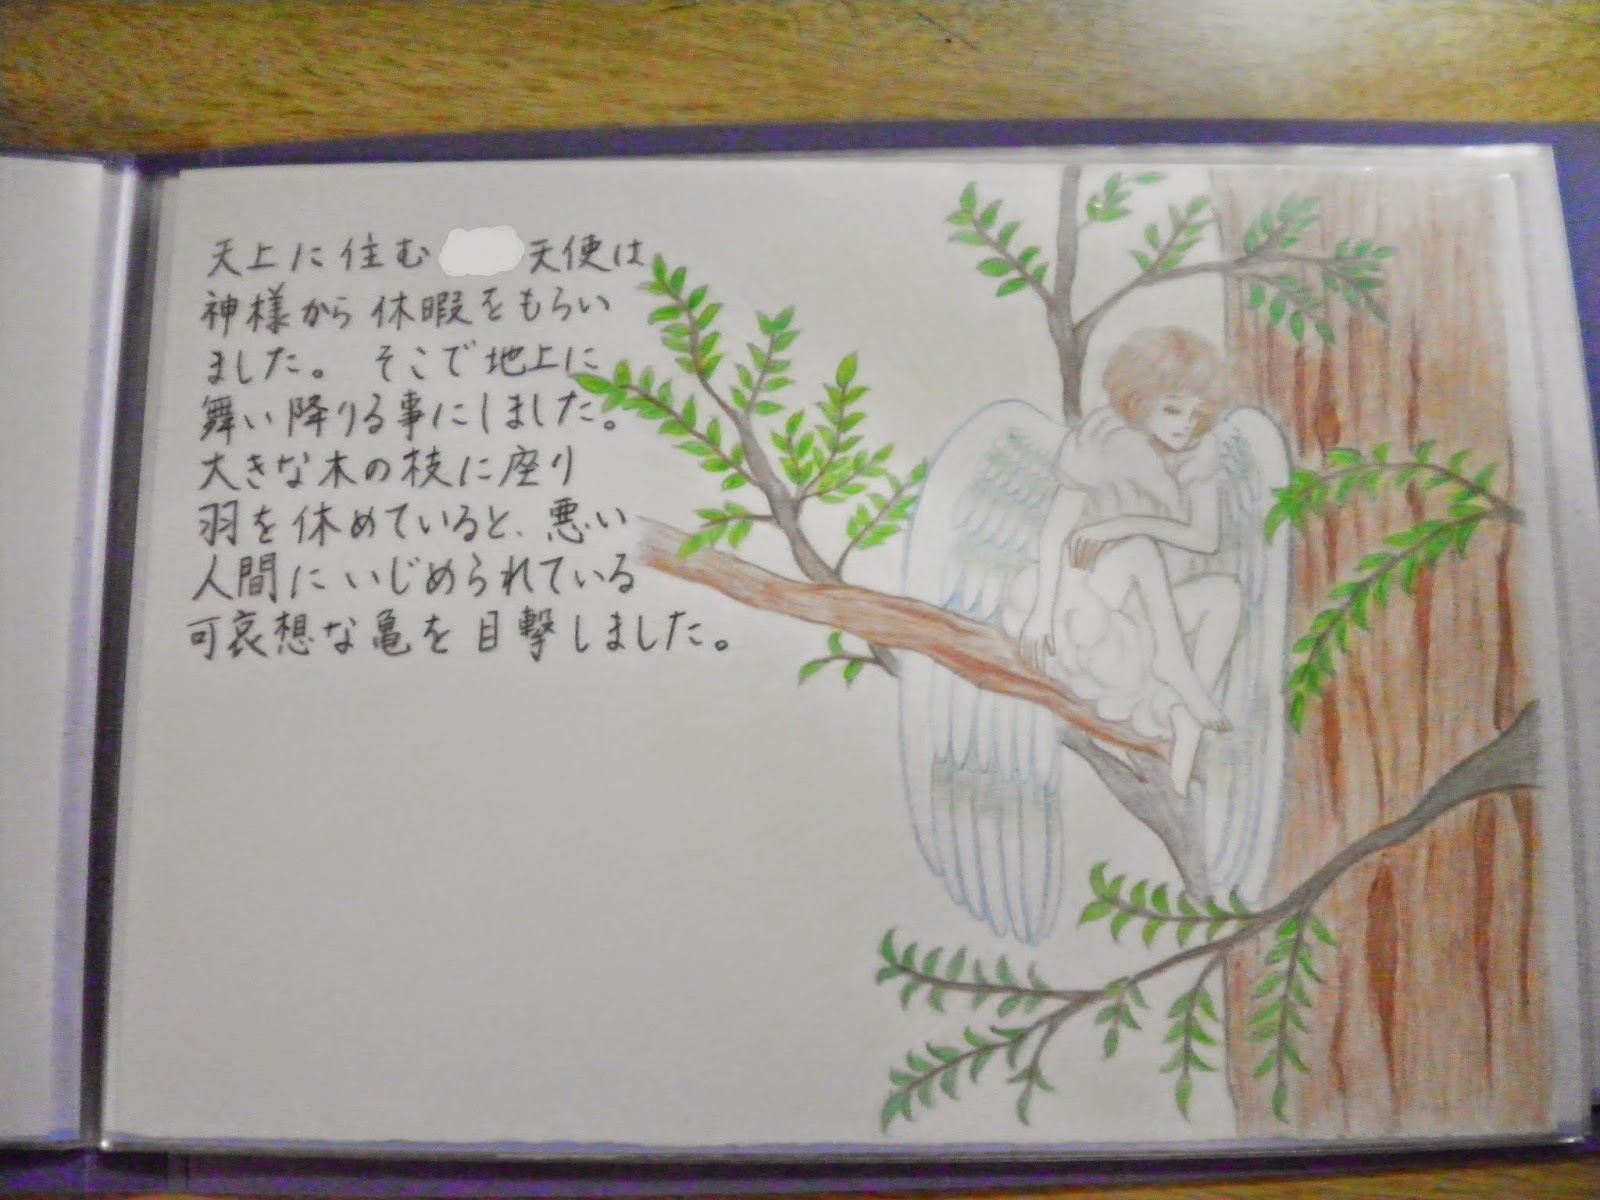 天上に住む 天使は
神様から休暇をもらい
ました。 そこで地上に
舞い降りる事にしました。
大きな木の枝に座り
羽を休めていると、悪い
人間にいじめられている
可哀想な亀を目撃しました。